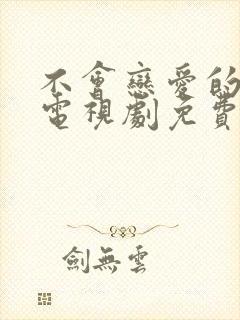 不會戀愛的
電視劇免費
劍無雲